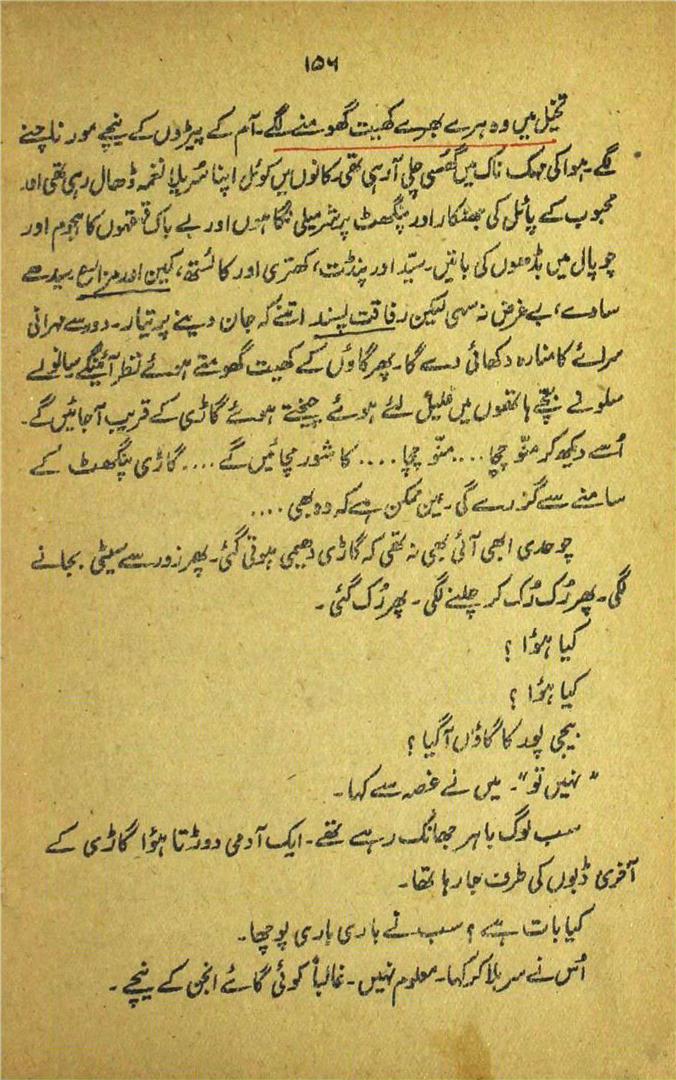 ۱۵۶
تخیل میں وہ ہرے بھرے کھیت گھومنے لگے۔ آم کے پیڑوں کے نیچے مور ناچنے
لگے۔ ہوا کی مہک ناک میں گھسی چلی آ رہی تھی، کانوں میں کوئل اپنا سُریلا نغمہ ڈھال رہی تھی اور
محبوب کے پائل کی جھنکار اور پنگھٹ پر شرمیلی نگاہوں اور بے باک قہقہوں کا ہجوم اور
چوپال میں بڈھوں کی باتیں۔ سیّد اور پنڈت، کھتری اور کائستھ، کمین اور مزارع سیدھے
سادے، بے غرض نہ سہی لیکن رفاقت پسند اتنے کہ جان دینے پر تیار۔ دور سے
سرائے کا منارہ دکھائی دے گا۔ پھر گاؤں کے کھیت گھومتے ہوئے نظر آئینگے سانولے
سلونے بچے ہاتھوں میں غلیل لئے ہوئے چیختے ہوئے گاڑی کے قریب آجائیں گے۔
اُسے دیکھ کر منّو چچا .... منّو چچا .... کا شور مچائیں گے .... گاڑی پنگھٹ کے
سامنے سے گزرے گی۔ عین ممکن ہے کہ وہ بھی ....
ابھی آئی بھی نہ تھی کہ گاڑی دھیمی ہوتی گئی۔ پھر زور سے سیٹی بجانے
لگی۔ پھر رُک رُک کر چلنے لگی۔ پھر رُک گئی۔
کیا ہؤا ؟
کیا ہؤا ؟
بیجی پور کا گاؤں آگیا ؟
"نہیں تو"۔ میں نے غصہ سے کہا۔
سب لوگ باہر جھانک رہے تھے۔ ایک آدمی دوڑتا ہؤا گاڑی کے
آخری ڈبوں کی طرف جا رہا تھا۔
کیا بات ہے ؟ سب نے باری باری پوچھا۔
اُس نے سر ہلا کر کہا۔ معلوم نہیں۔ غالباً کوئی گائے انجن کے نیچے۔